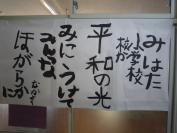 みはた
小学校
桜が
平和の光
みにつけて
みんな
ほがらかに